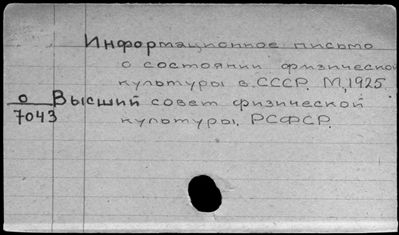 Информационное письмо
о состоянии физической
культуры в СССР. М, 1925.
о Высший совет физической
7043 культуры. РСФСР.